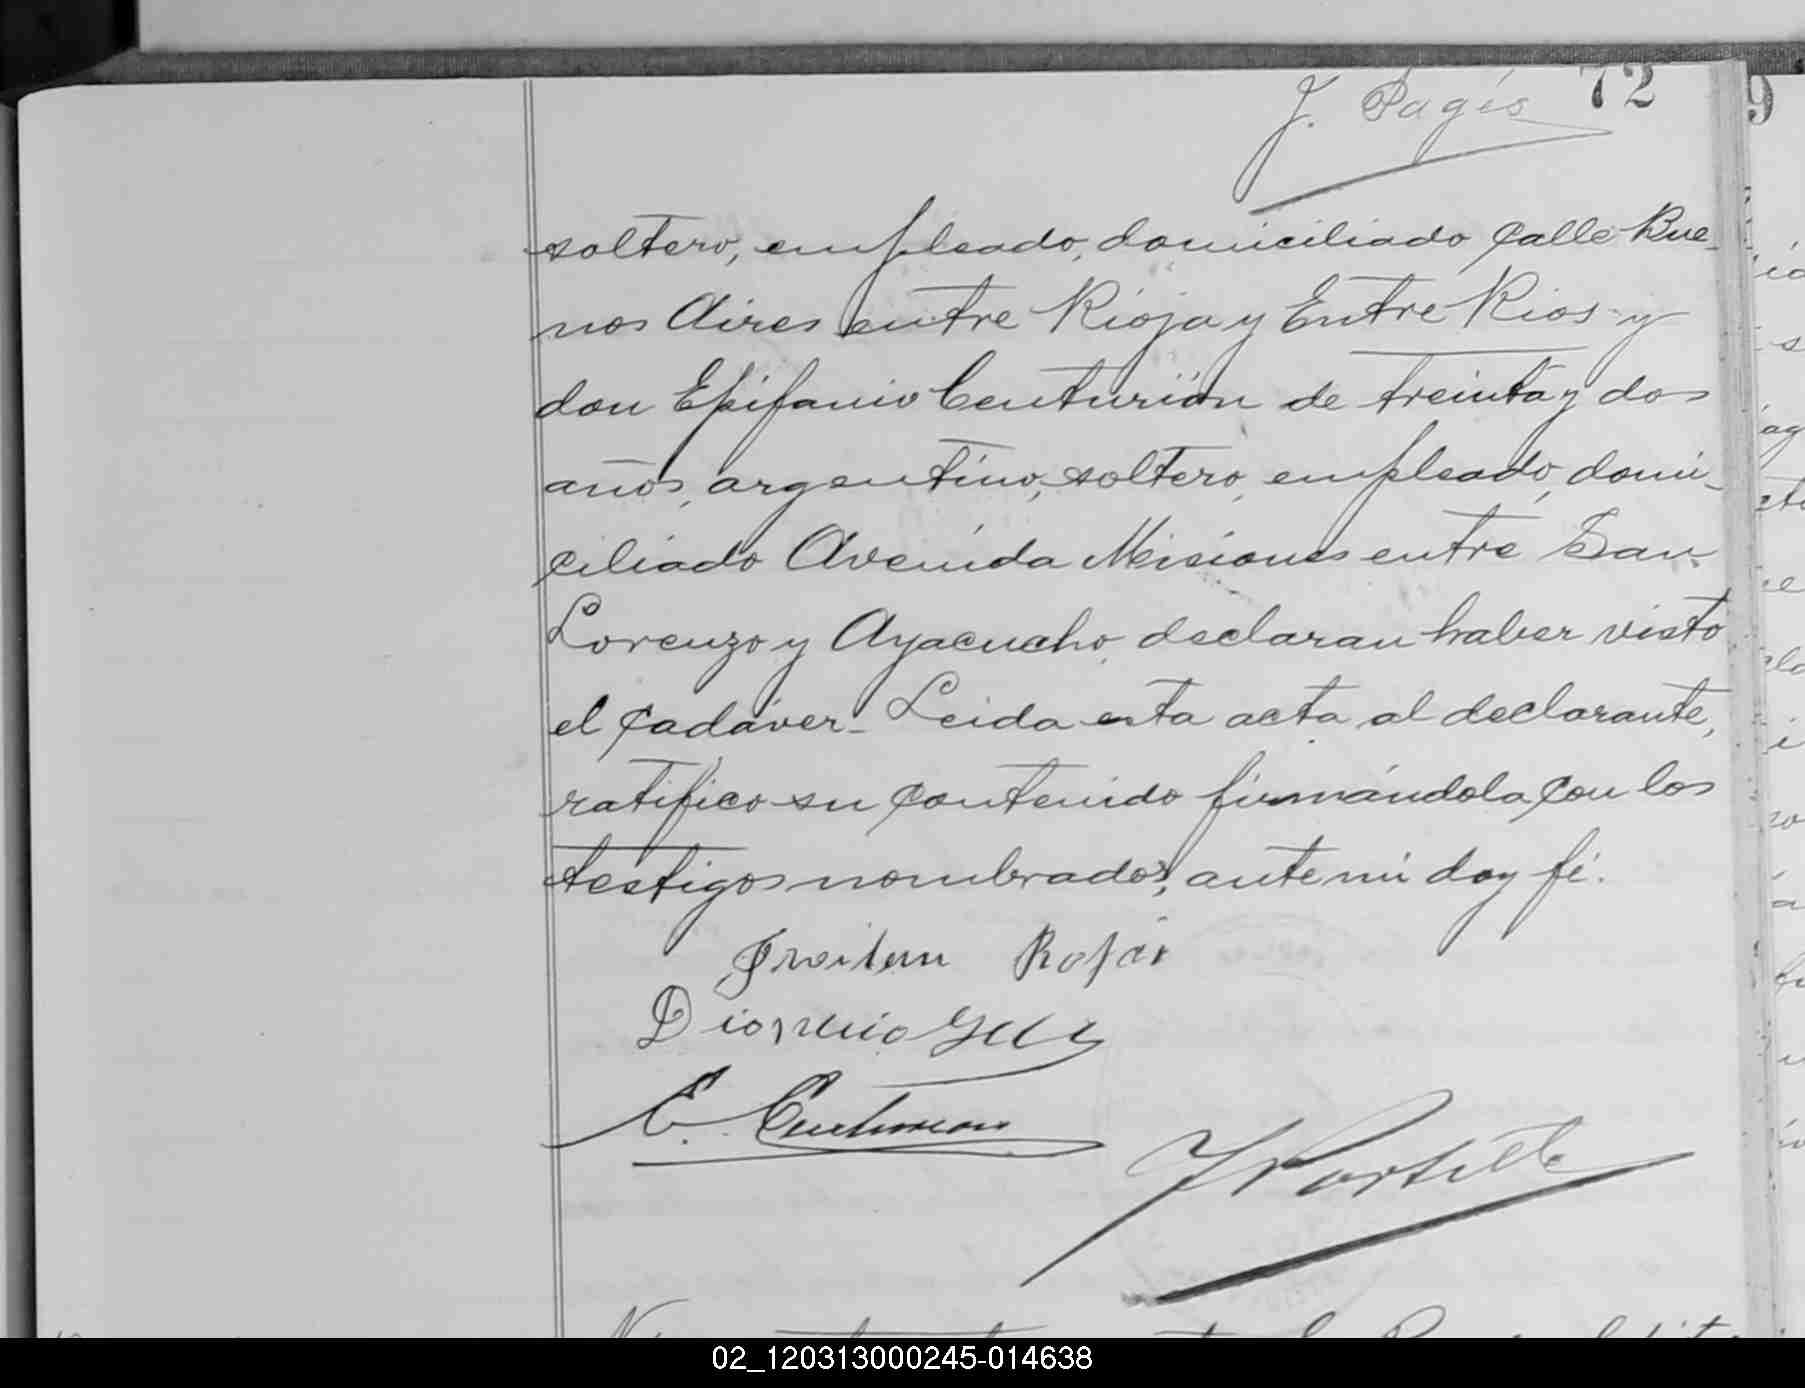 J. Pagés 72
soltero, empleado, domiciliado calle Bue-
nos Aires entre Rioja y Entre Rios y
don Epifanio Centurión de treinta y dos
años, argentino, soltero, empleado, domi-
ciliado Avenida Misiones entre San
Lorenzo y Ayacucho, declaran haber visto
el cadáver. Leida esta acta al declarante,
ratifico su contenido firmándola con los
testigos nombrados, ante mi doy fé.
Rojas
Dionicio
E. Centurion
02_120313000245-014638